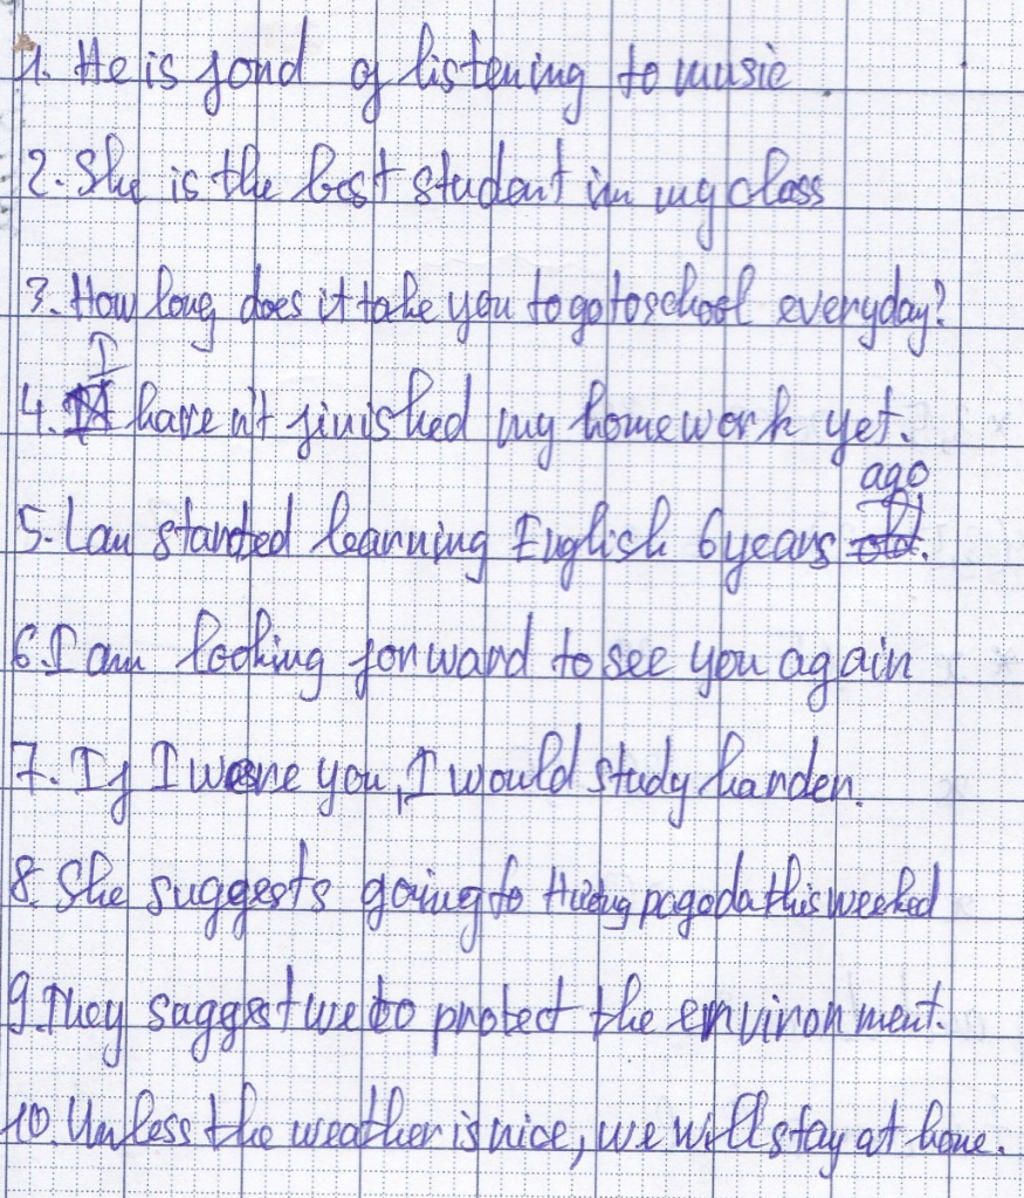 1. He is fond of listening to music.
2. She is the best student in my class
3. How long does it take you to go to school everyday?
4. I have n't finished my homework yet.
5. I am started learning English 6 years ago.
6. I am looking forward to see you again
7. If I were you, I would study harder.
8. She suggests going to Hương pagoda this weeked
9. They suggest we to protect the environment.
10. Unless the weather is nice, we will stay at home.